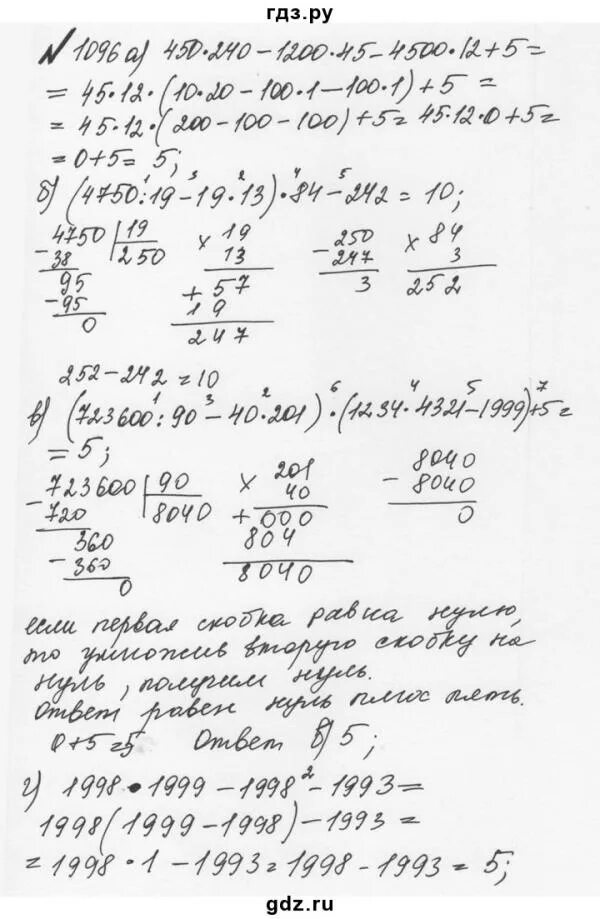 гдз.ру
№ 1096 а) 450·240 – 1200·45 – 4500·12 + 5 =
= 45·12·(10·20 – 100·1 – 100·1) + 5 =
= 45·12·(200 – 100 – 100) + 5 = 45·12·0 + 5 =
= 0 + 5 = 5;
1 3 2 4 5
б) (4750:19 – 19·13)·84 – 242 = 10;
4750 19 19 250 84
- 38 250 × 13 - 247 × 3
95 + 57 3 252
- 95 19
0 247
252 – 242 = 10
1 3 2 6 4 5 7
в) (723600:90 – 40·201)·(1234·4321 – 1999) + 5 =
= 5;
723600 90 201 8040
- 720 8040 × 40 - 8040
360 + 000 0
- 360 804
0 8040
если первая скобка равна нулю,
то умножив вторую скобку на
нуль, получим нуль.
Ответ равен нуль плюс пять.
0 + 5 = 5 Ответ в) 5;
г) 1998·1999 – 1998² – 1993 =
1998(1999 – 1998) – 1993 =
= 1998·1 – 1993 = 1998 – 1993 = 5;
gdz.ru